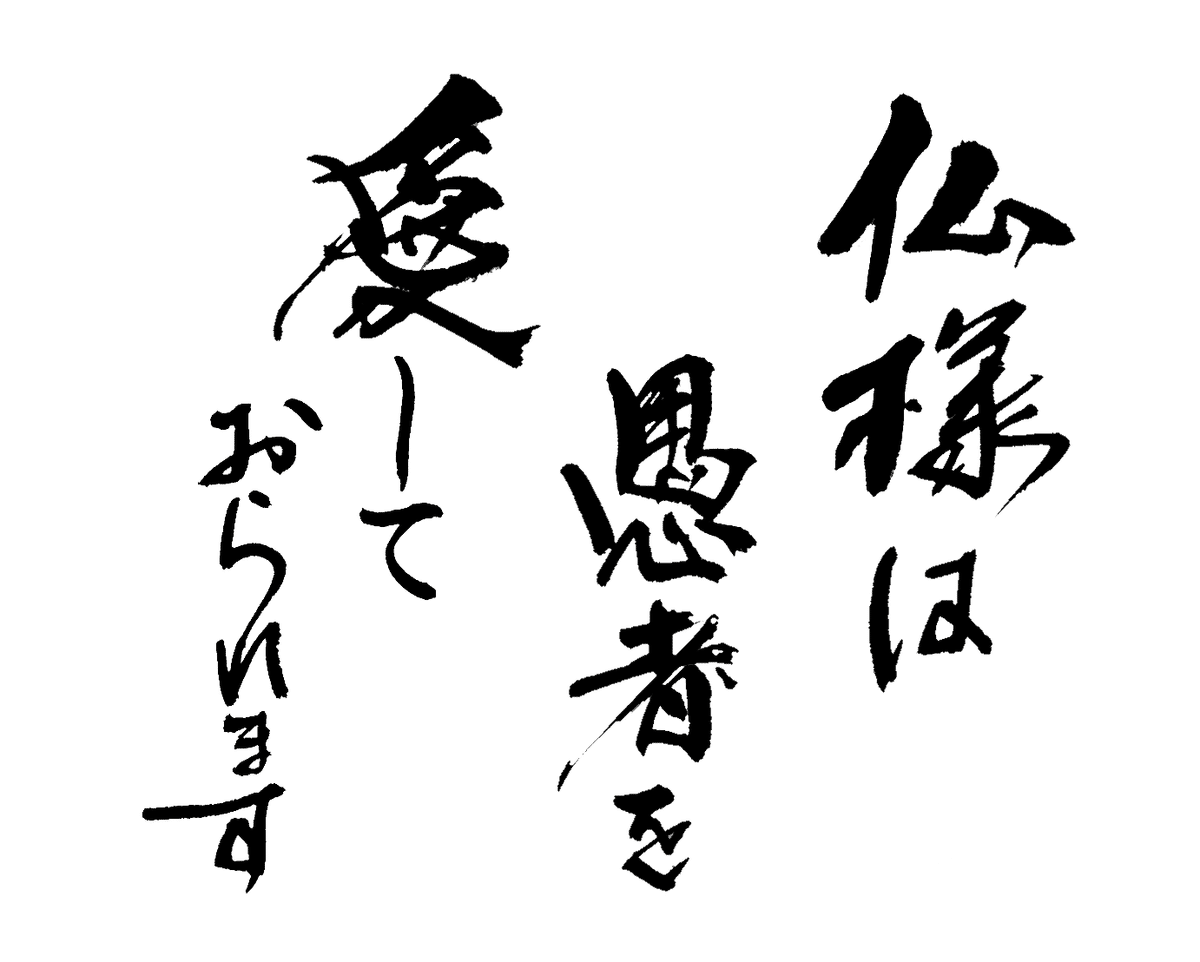 仏様は
愚者を
愛して
おられます